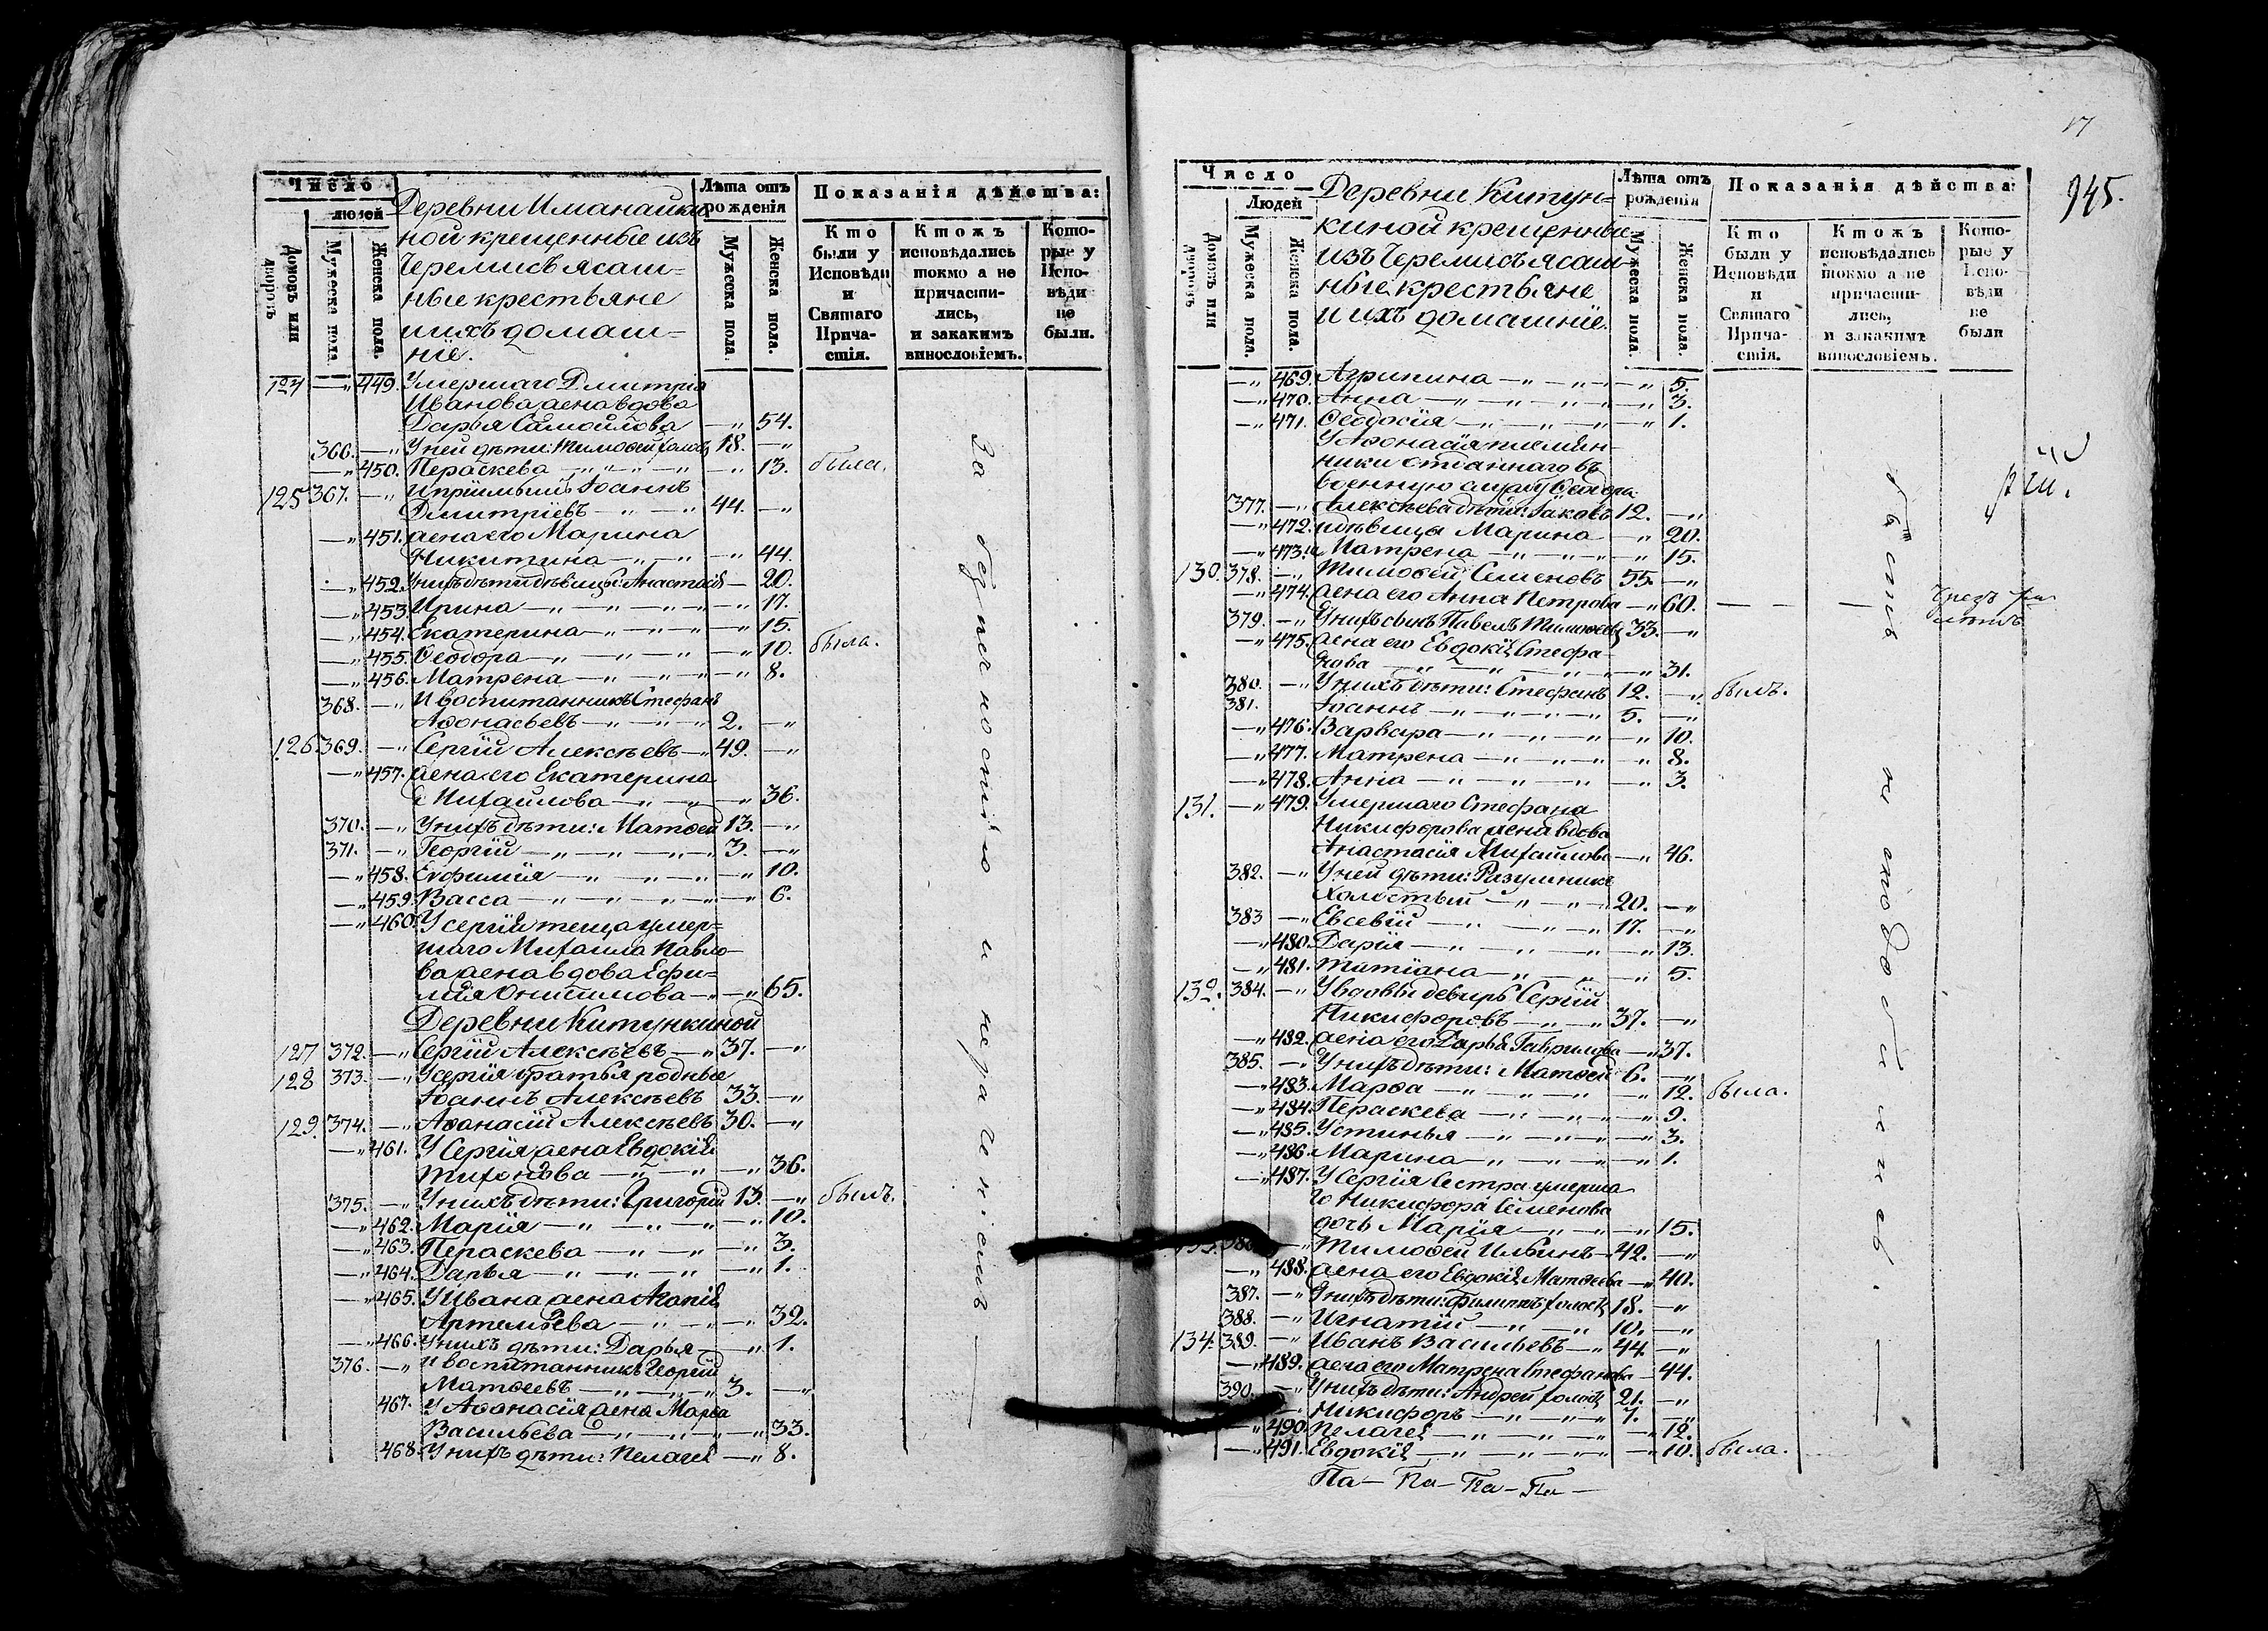 Число
людей
Домовъ или дворовъ
Мужеска пола.
Женска пола.
Деревни Иманайки-
ной крещенные изъ
Черемисъ ясаш-
ные крестьяне
и ихъ домаш-
ніе.
Лѣта отъ рожденія
Мужеска пола.
Женска пола.
Показанія дѣйства:
Кто были у Исповѣди и Святаго Прича-стія.
Ктожъ исповѣдались токмо а не причасти-лись, и закакимъ винословіемъ.
Кото-рые у Испо-вѣди не были.
124 —„ 449. Умершаго Дмитрія
Иванова жена вдова
Дарья Самойлова —„ 54.
366. —„ У ней дѣти: Тимофей холост 18. —„
—„ 450. Параскева —„ —„ —„ 13. была.
125 367. —„ Іоаннъ
Дмитріевъ —„ —„ 44. —„
—„ 451. жена его Марина
Никитина —„ —„ —„ 44.
—„ 452. У нихъ дѣти дѣвицы: Анастасія — 20.
—„ 453. Ирина —„ —„ —„ —„ 17.
—„ 454. Екатерина —„ —„ —„ 15.
—„ 455. Ѳеодора —„ —„ —„ —„ 10. была.
—„ 456. Матрена —„ —„ —„ —„ 8.
368. —„ И воспитанникъ Стефанъ
Аѳонасьевъ —„ —„ —„ 2. —„
126. 369. —„ Сергій Алексѣевъ —„ 49. —„
—„ 457. жена его Екатерина
Михайлова —„ —„ —„ 36.
370. —„ У нихъ дѣти: Матѳей 13. —„
371. —„ Георгій —„ —„ —„ —„ 3. —„
—„ 458. Евфимія —„ —„ —„ —„ 10.
—„ 459. Васса —„ —„ —„ —„ —„ 6.
—„ 460. У Сергія теща умер-
шаго Михаила Павло-
ва жена вдова Ефи-
мія Онисимова —„ —„ 65.
Деревни Китункиной
127 372. —„ Сергій Алексѣевъ —„ 37. —„
128 373. —„ У Сергія братья родные
Іоаннъ Алексѣевъ 33. —„
129. 374. —„ Аѳанасій Алексѣевъ 30. —„
—„ 461. У Сергія жена Евдокія
Тихонова —„ —„ —„ 36.
375. —„ У нихъ дѣти: Григорій 13. —„ былъ.
—„ 462. Марія —„ —„ —„ —„ 10.
—„ 463. Параскева —„ —„ —„ 3.
—„ 464. Дарья —„ —„ —„ —„ 1.
—„ 465. У Ивана жена Агапія
Артемьева —„ —„ —„ 32.
—„ 466. У нихъ дѣти: Дарья —„ 1.
376. —„ И воспитанникъ Георгій
Матѳеевъ —„ —„ —„ 3. —„
467. У Аѳанасія жена Марѳа
Васильева —„ —„ —„ —„ 33.
468. У нихъ дѣти: Пелагея —„ 8.
За бытностію и нераченіемъ —
17
945.
Число
Людей
Домовъ или дворовъ
Мужеска пола.
Женска пола.
Деревни Китун-
киной крещенные
изъ Черемисъ ясаш-
ные крестьяне
и ихъ домашніе.
Лѣта отъ рожденія
Мужеска пола.
Женска пола.
Показанія дѣйства:
Кто были у Исповѣди и Святаго Прича-стія.
Ктожъ исповѣдались токмо а не причасти-лись, и закакимъ винословіемъ.
Кото-рые у Испо-вѣди не были
—„ 469. Агрипина —„ —„ —„ 5.
—„ 470. Анна —„ —„ —„ —„ 3.
—„ 471. Ѳеодосія —„ —„ —„ —„ 1.
У Аѳонасія племян-
ники отданнаго въ
военную службу Ѳедора
377. —„ Алексѣева дѣти: Іаковъ 12. —„
—„ 472. дѣвицы Марина —„ 20.
—„ 473. Матрена —„ —„ —„ 15.
130. 378. —„ Тимоѳей Семеновъ 55. —„
—„ 474. жена его Анна Петрова —„ 60.
379. —„ У нихъ сынъ Павелъ Тимоѳеевъ 33. —„
—„ 475. жена его Евдокія Стефа-
нова —„ —„ —„ —„ 31.
380. —„ У нихъ дѣти: Стефанъ 12. —„ былъ.
381. Іоаннъ —„ —„ —„ —„ 5. —„
—„ 476. Варвара —„ —„ —„ —„ 10.
—„ 477. Матрена —„ —„ —„ —„ 8.
—„ 478. Анна —„ —„ —„ —„ 3.
131. —„ 479. Умершаго Стефана
Никифорова жена вдова
Анастасія Михайлова —„ 46.
382. —„ У ней дѣти: Разумникъ
холостый —„ —„ —„ 20. —„
383 —„ Евсевій —„ —„ —„ 17. —„
—„ 480. Дарія —„ —„ —„ —„ 13.
—„ 481. Татіана —„ —„ —„ 5.
132. 384. —„ У вдовы деверь Сергій
Никифоровъ —„ —„ 37. —„
—„ 482. жена его Дарья Гаврилова —„ 37.
385. —„ У нихъ дѣти: Матѳей 6. —„
—„ 483. Марѳа —„ —„ —„ —„ 12. была.
—„ 484. Параскева —„ —„ —„ —„ 9.
—„ 485. Устинья —„ —„ —„ —„ 3.
—„ 486. Марина —„ —„ —„ —„ 1.
—„ 487. У Сергія сестра умерша-
го Никифора Семенова
дочь Марія —„ —„ —„ 15.
—„ Тимоѳей Ильинъ —„ 42. —„
—„ 488. жена его Евдокія Матѳеева —„ 40.
387. —„ У нихъ дѣти: Филиппъ холост 18. —„
388. —„ Игнатій —„ —„ 10. —„
134. 389. —„ Иванъ Васильевъ —„ 44. —„
—„ 489. жена его Матрена Стефанова — 44.
390. —„ У нихъ дѣти: Андрей холост 21. —„
—„ Никифоръ —„ —„ —„ 7. —„
—„ 490. Пелагея —„ —„ —„ —„ 12.
—„ 491. Евдокія —„ —„ —„ —„ 10. была.
Па — Па — Па — Па —